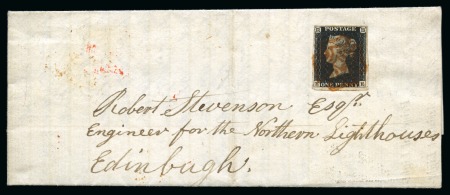 POSTAGE
ONE PENNY
Robert Stevenson Esqr.
Engineer for the Northern Lighthouses
Edinbugh.